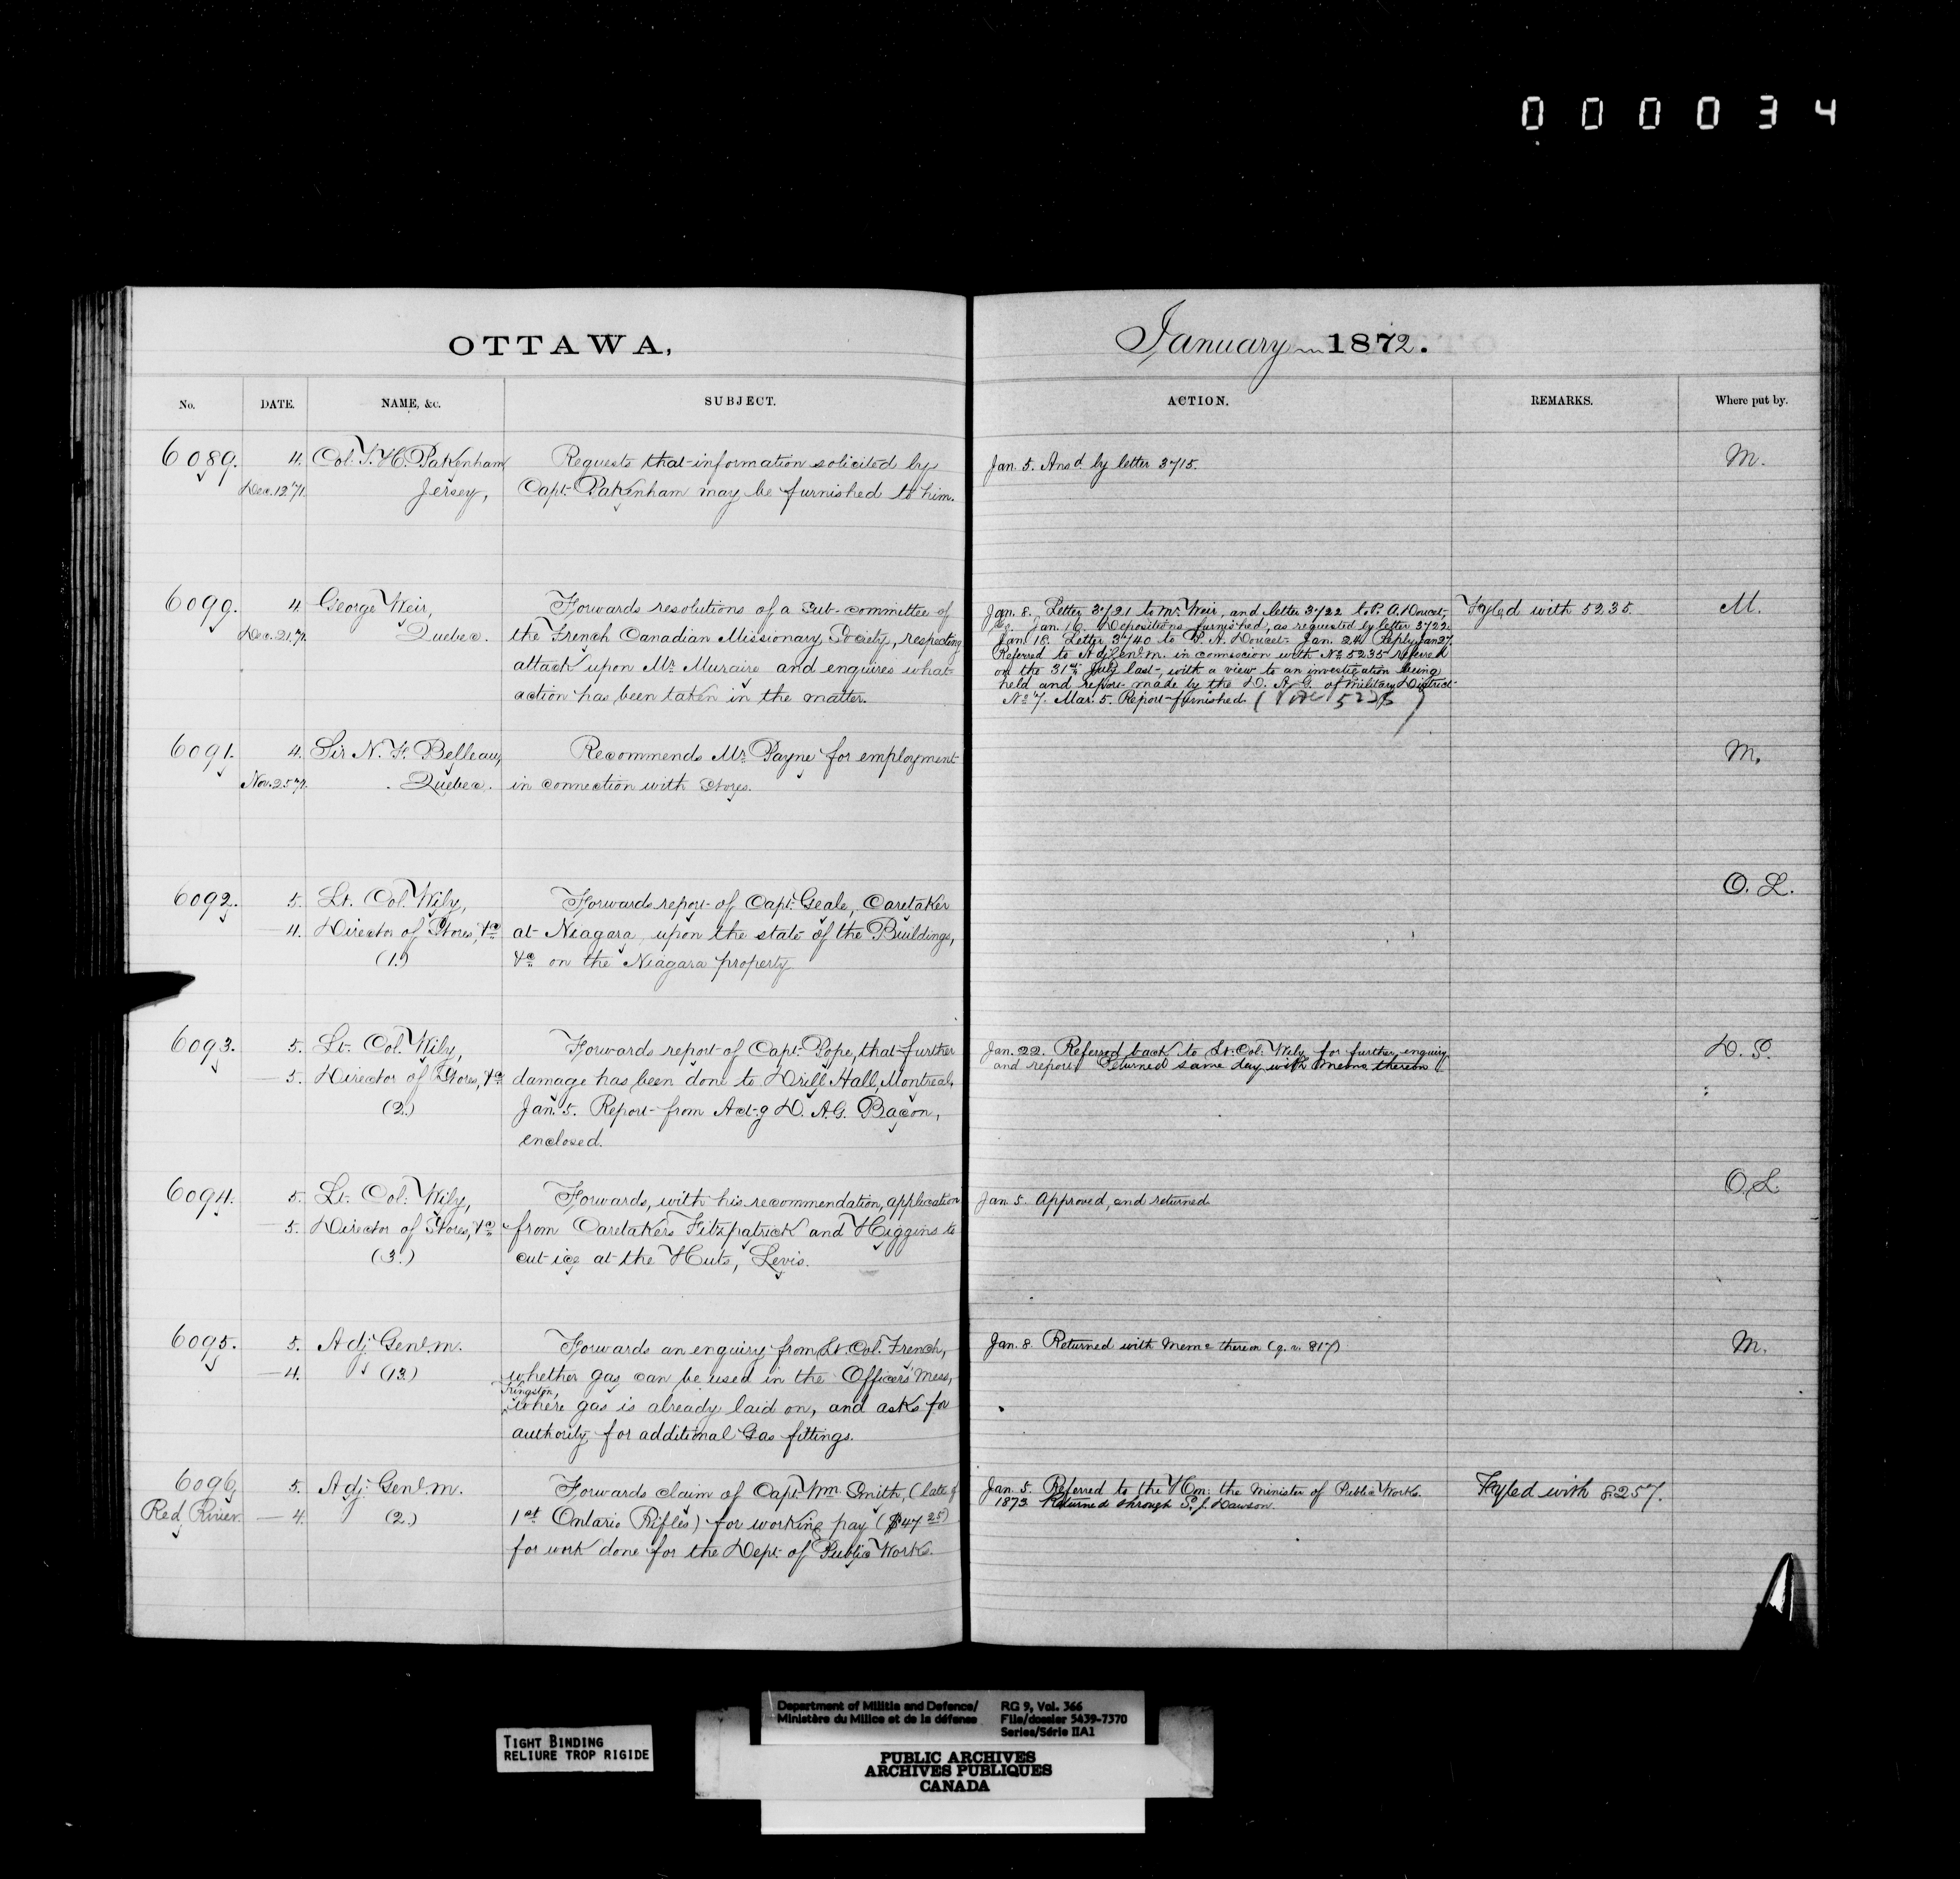 0 0 0 0 3 4
OTTAWA,
No. DATE. NAME, &c. SUBJECT.
6089. 4. Col. T. H. Pakenham Requests that information solicited by
Dec. 12 '71. Jersey, Capt. Pakenham may be furnished to him.
6099. 4. George Weir, Forwards resolutions of a Sub-committee of
Dec. 21. 71. Quebec. the French Canadian Missionary Society, respecting
attack upon Mr. Muraire and enquires what
action has been taken in the matter.
6091. 4. Sir N. F. Belleau, Recommends Mr. Payne for employment
Nov. 25 71. Quebec. in connection with Stores.
6092. 5. Lt. Col. Wily, Forwards report of Capt. Geale, Caretaker
4. Director of Stores, &c at Niagara, upon the state of the Buildings,
(1.) &c on the Niagara property.
6093. 5. Lt. Col. Wily, Forwards report of Capt. Pope, that further
5. Director of Stores, &c damage has been done to Drill Hall, Montreal.
(2.) Jan. 5. Report from Act-g D. A. G. Bacon,
enclosed.
6094. 5. Lt. Col. Wily, Forwards, with his recommendation, application
5. Director of Stores, &c from Caretakers Fitzpatrick and Higgins to
(3.) cut ice at the Huts, Levis.
6095. 5. Adj. Genl. m. Forwards an enquiry from Lt. Col. French,
4. (13.) whether gas can be used in the Officers' Mess,
Kingston,
where gas is already laid on, and asks for
authority for additional Gas fittings.
6096. 5. Adj. Genl. m. Forwards claim of Capt. Wm. Smith, (late of
Red River. 4. (2.) 1st Ontario Rifles) for working pay ($47 25)
for work done for the Dept. of Public Works.
January 1872.
ACTION. REMARKS. Where put by.
Jan. 5. Ansd. by letter 3715. M.
Jan. 8. Letter 3721 to Mr. Weir, and letter 3722 to P. A. Doucet, Fyled with 5235 M.
Jan. 16. Depositions furnished, as requested by letter 3722.
Jan. 18. Letter 3740 to P. A. Doucet. Jan. 24. Reply. Jan 27
Referred to Adj. Genl. m. in connexion with No. 5235 referred
on the 31st July last, with a view to an investigation being
held and report made by the D. A. G. of Military District
No. 7. Mar. 5. Report furnished. (Vide 5235)
M.
O. L.
Jan. 22. Referred back to Lt. Col. Wily for further enquiry D. S.
and report. Returned same day with Memo. thereon
O. L.
Jan. 5. Approved, and returned.
Jan. 8 Returned with Memo thereon (q. v. 817) M.
Jan. 5. Referred to the Hon. the Minister of Public Works. Fyled with 8257.
1873 Returned through S. J. Dawson.
TIGHT BINDING
RELIURE TROP RIGIDE
Department of Militia and Defence/
Ministère du Milice et de la défense
RG 9, Vol. 366
File/dossier 5439-7370
Series/Série IIA1
PUBLIC ARCHIVES
ARCHIVES PUBLIQUES
CANADA